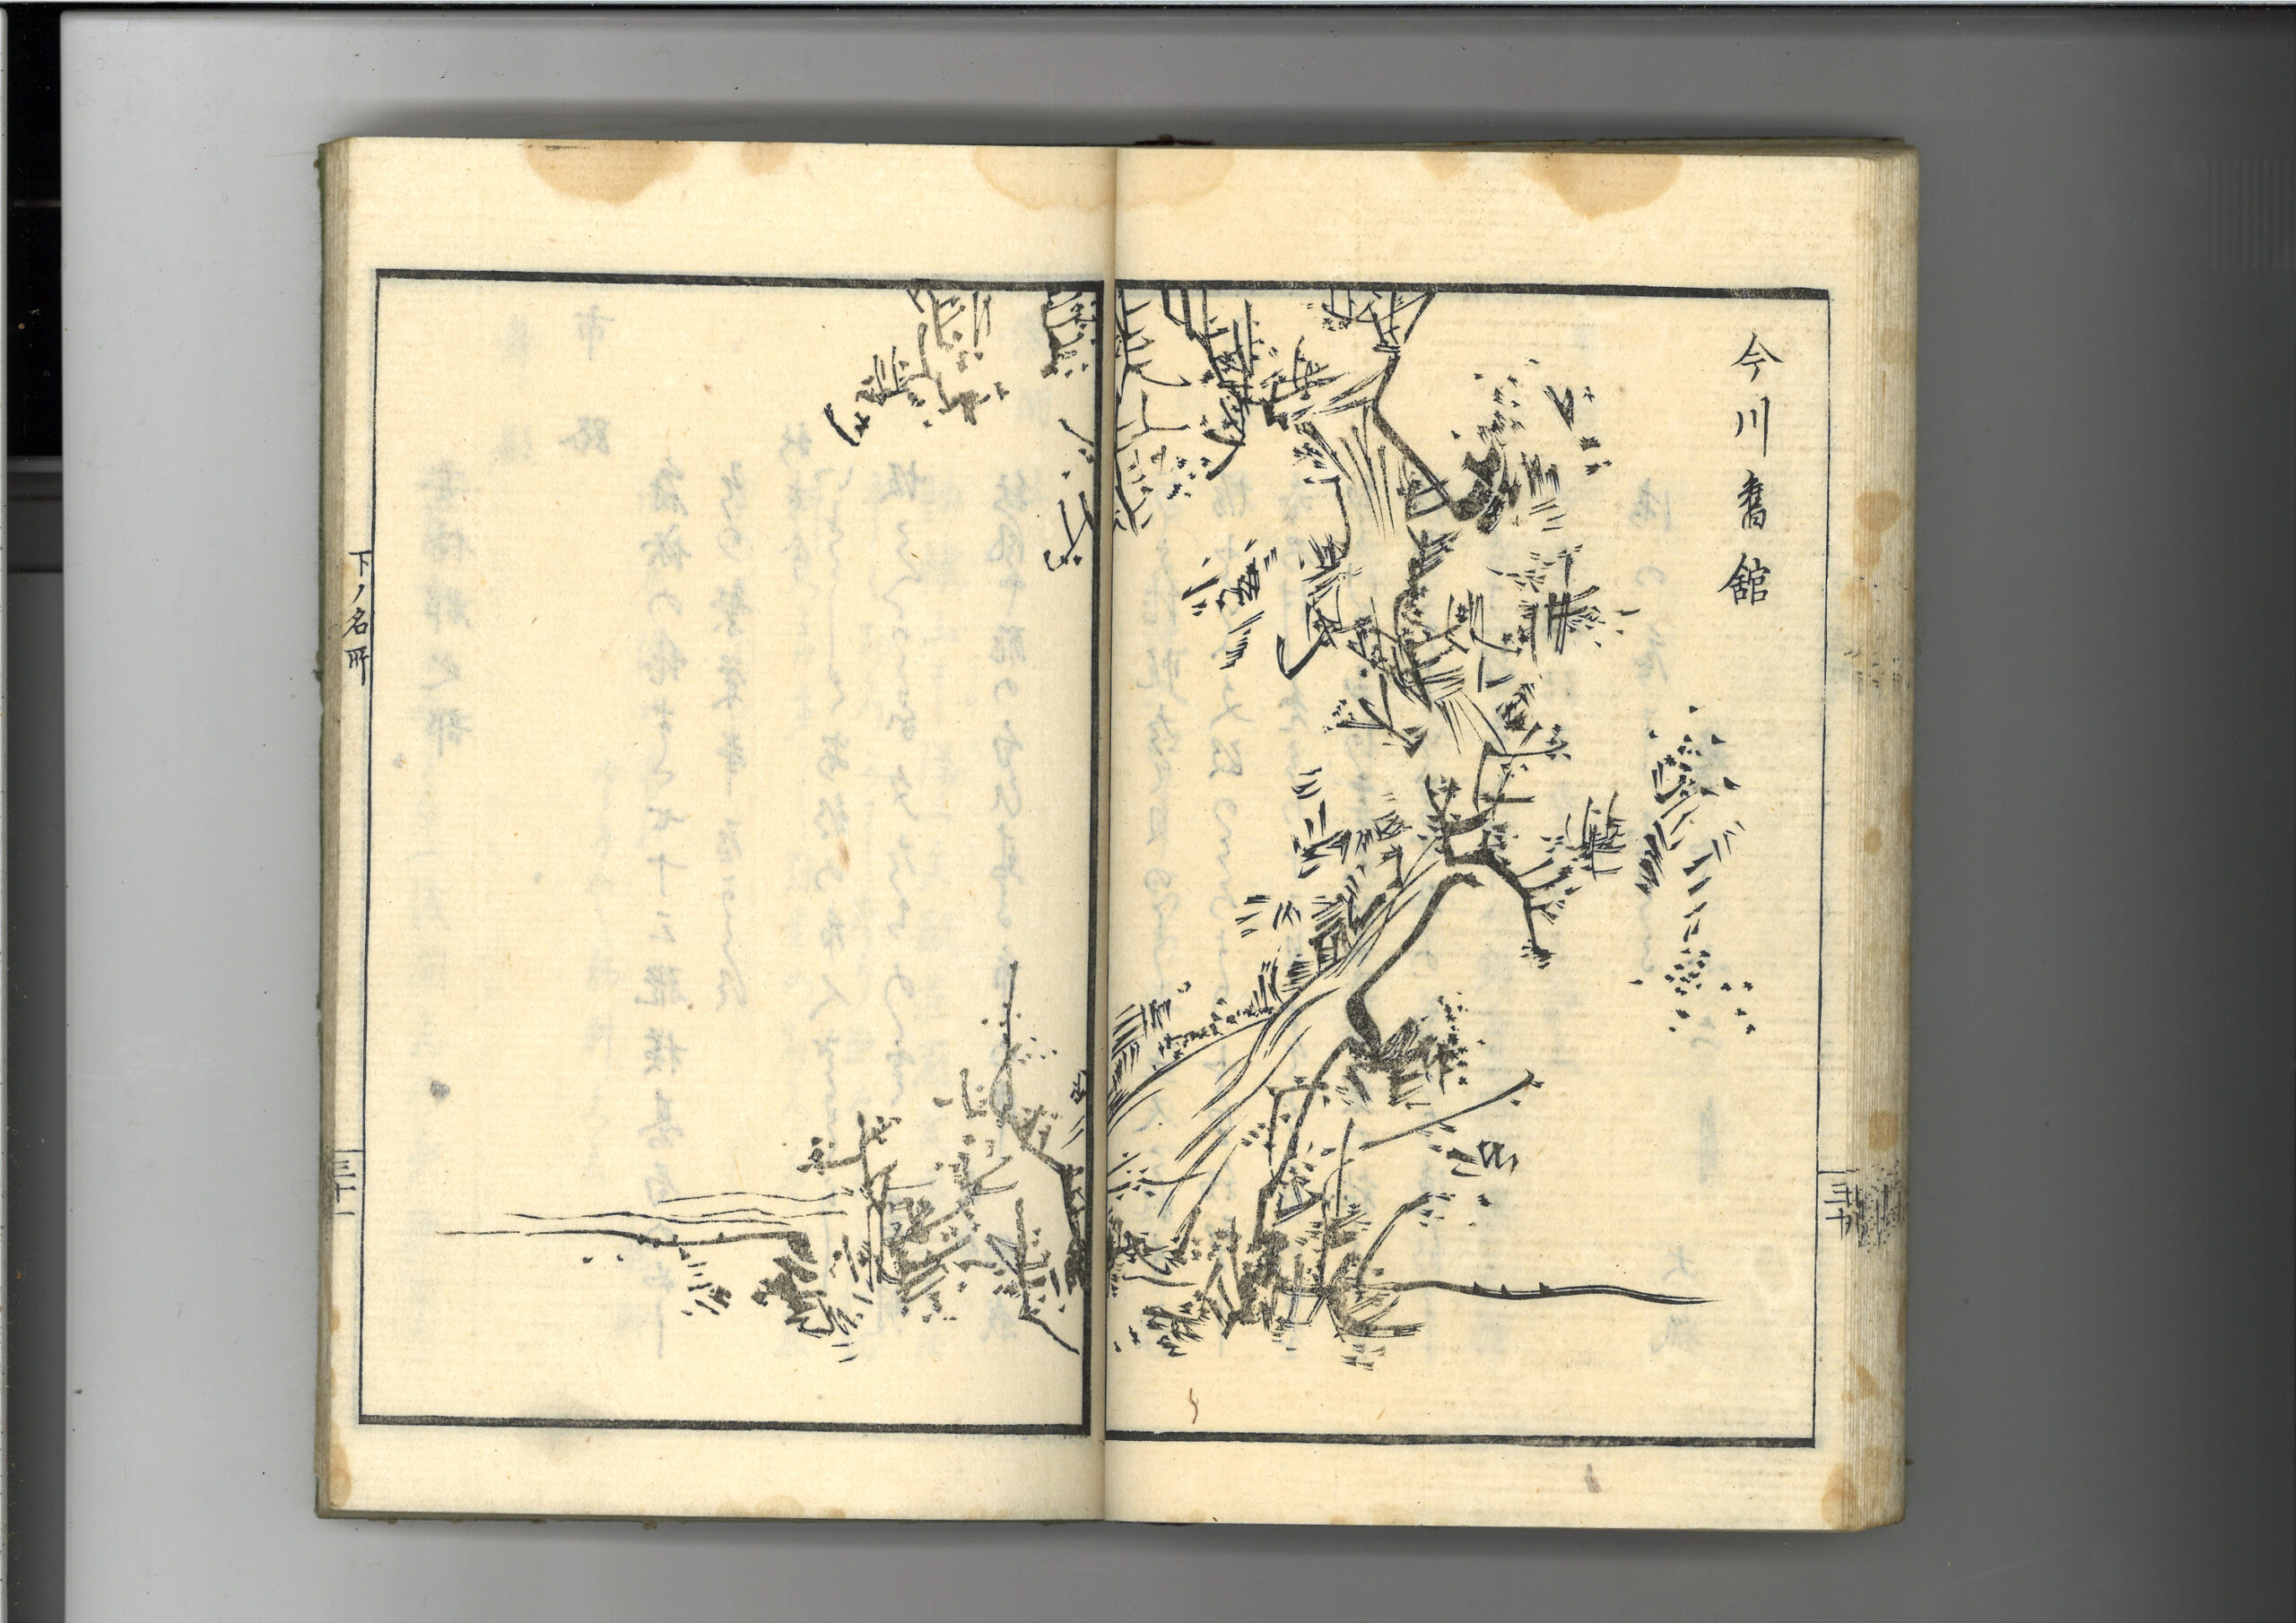 今川舊舘
三十
下ノ名所
三十一